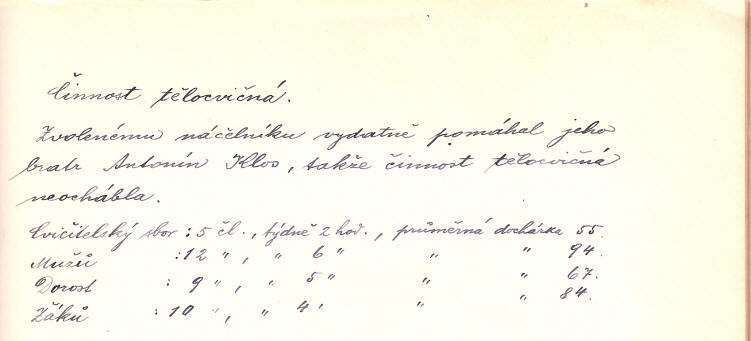 Činnost tělocvičná.
Zvolenému náčelníku vydatně pomáhal jeho
bratr Antonín Klos, takže činnost tělocvičná
neochábla.
Cvičitelský sbor : 5 čl., týdně 2 hod., průměrná docházka 55.
Mužů : 12 " , " 6 " " " 94.
Dorost : 9 " , " 5 " " " 67.
Žáků : 10 " , " 4 " " " 84.